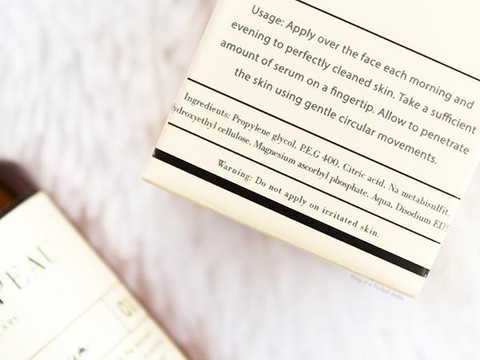 Usage: Apply over the face each morning and
evening to perfectly cleaned skin. Take a sufficient
amount of serum on a fingertip. Allow to penetrate
the skin using gentle circular movements.
Ingredients: Propylene glycol, P.E.G 400, Citric acid, Na metabisulfit,
ydroxyethyl cellulose, Magnesium ascorbyl phosphate, Aqua, Disodium ED
Warning: Do not apply on irritated skin.
PEAU